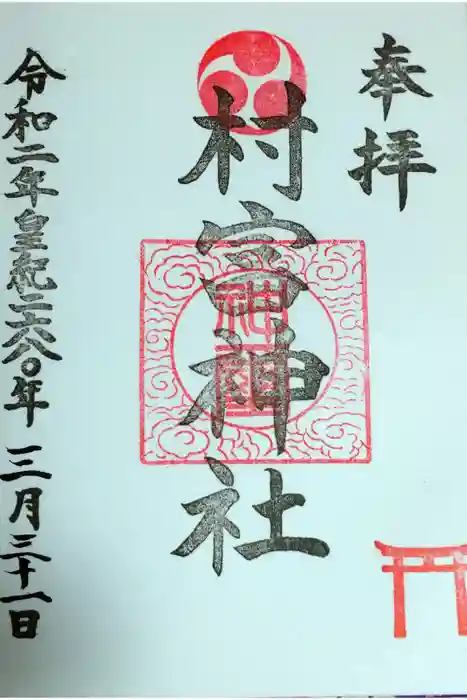 奉拝
村富神社
令和二年皇紀二六八〇年 三月三十一日